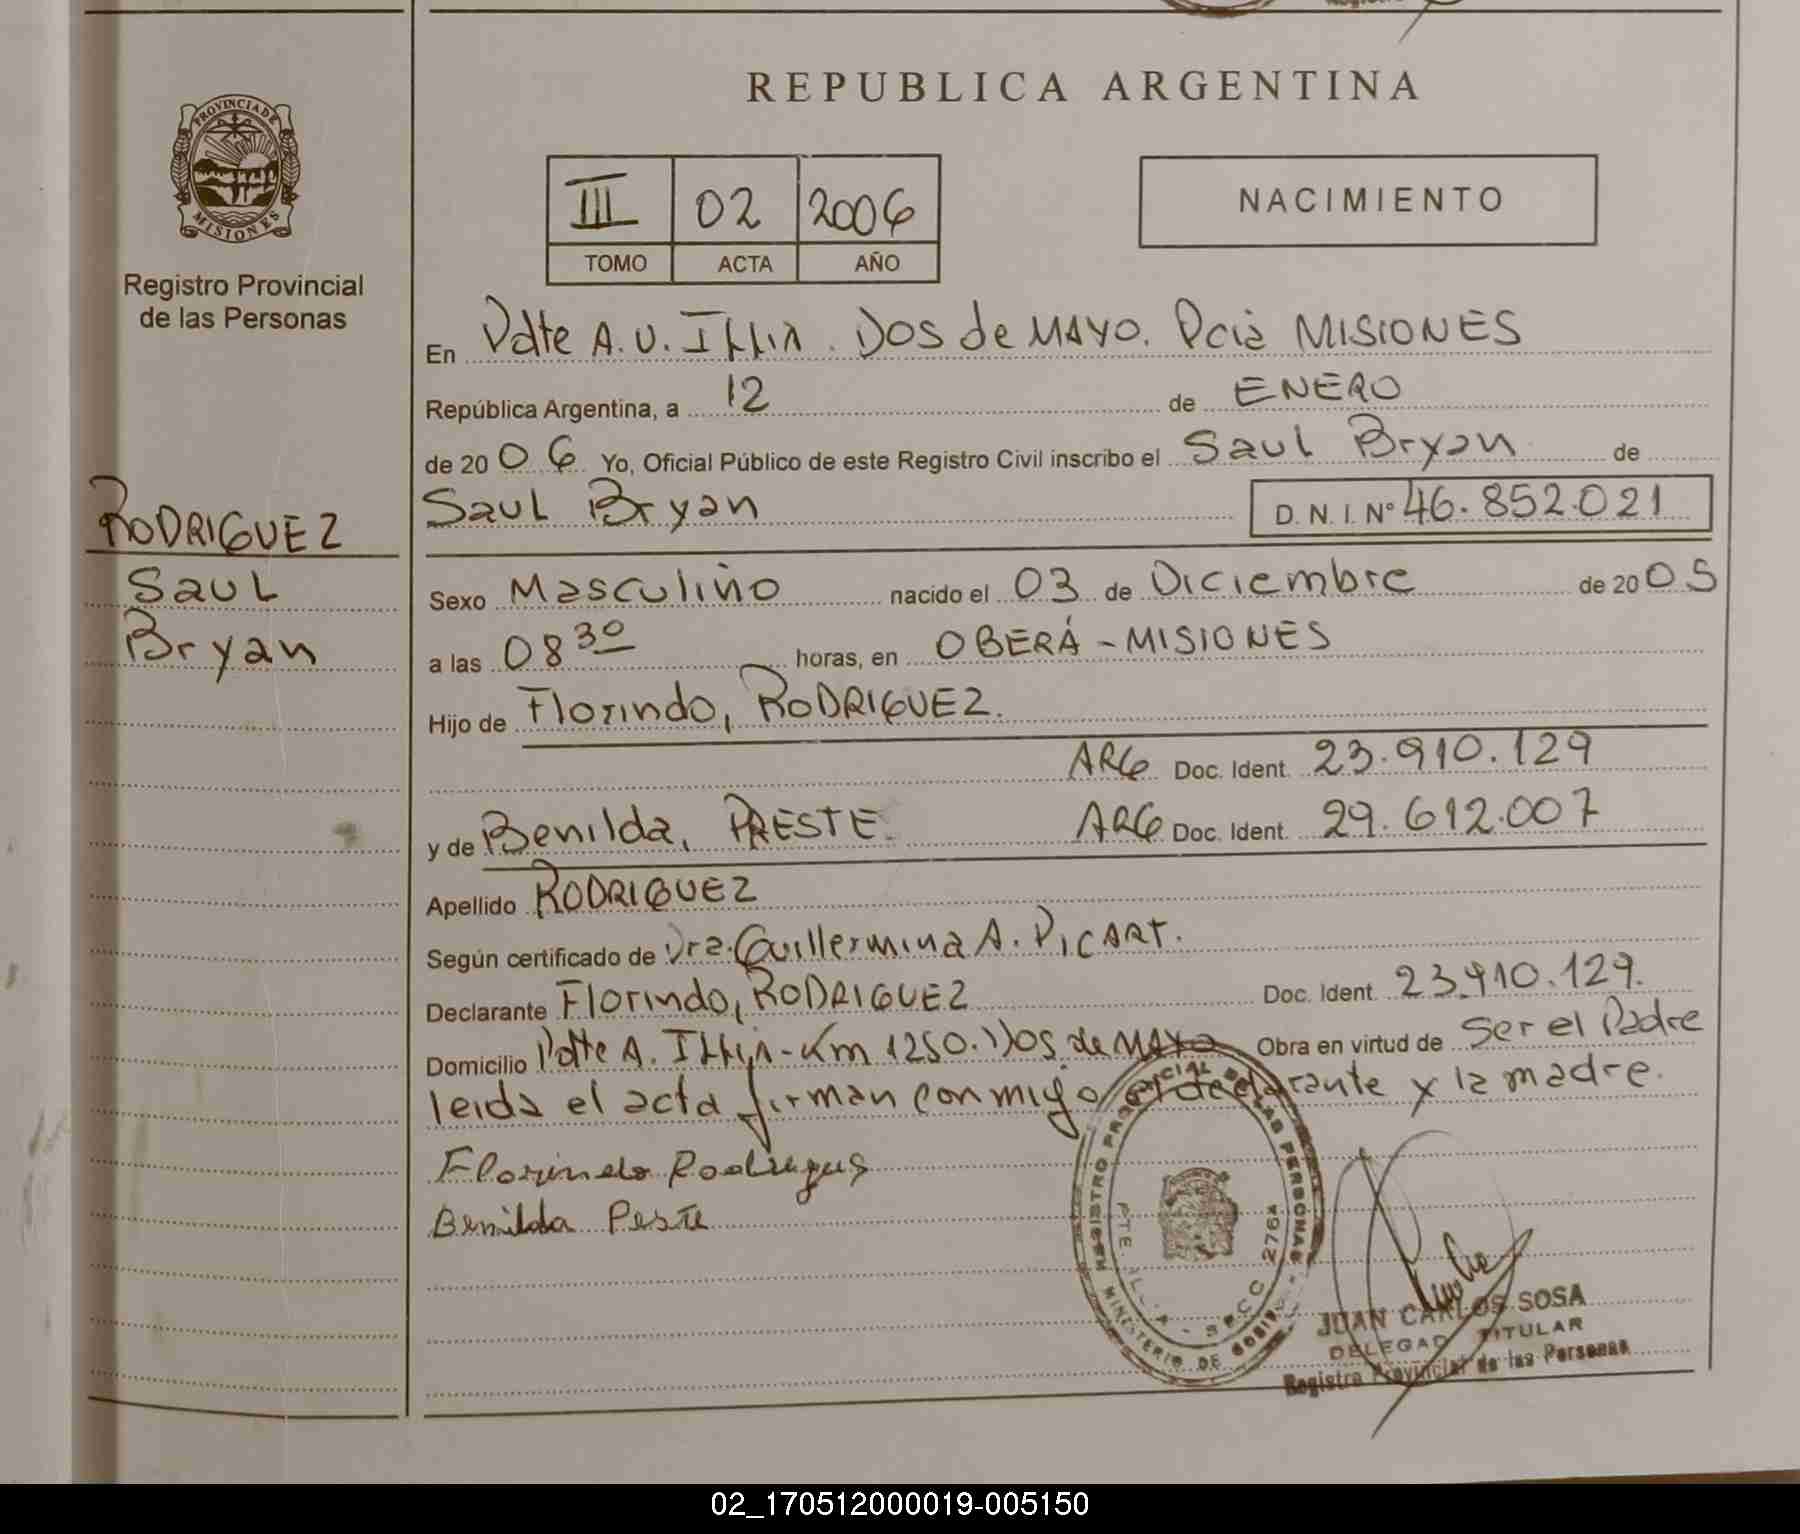 REPUBLICA ARGENTINA
PROVINCIA DE
MISIONES
III 02 2006
TOMO ACTA AÑO
NACIMIENTO
Registro Provincial
de las Personas
En Pdte A. U. Illia. Dos de MAYO. Pcia MISIONES
República Argentina, a 12 de ENERO
de 20 06 Yo, Oficial Público de este Registro Civil inscribo el Saul Bryan de
RODRIGUEZ
Saul Bryan D. N. I. Nº 46.852.021
Saul
Bryan
Sexo Masculino nacido el 03 de Diciembre de 20 05
a las 08 30 horas, en OBERÁ - MISIONES
Hijo de Florindo, RODRIGUEZ.
ARG Doc. Ident. 23.910.129
y de Benilda, PRESTE. ARG Doc. Ident. 29.612.007
Apellido RODRIGUEZ
Según certificado de Dra. Guillermina A. PICART.
Declarante Florindo, RODRIGUEZ Doc. Ident. 23.910.129.
Domicilio Pdte A. Illia - Km 1250. Dos de MAYO Obra en virtud de Ser el Padre
leida el acta firman conmigo el declarante y la madre.
Florindo Rodrigues
Benilda Peste
REGISTRO PROVINCIAL DE LAS PERSONAS
MINISTERIO DE GOBIERNO
2764
JUAN CARLOS SOSA
DELEGADO TITULAR
Registro Provincial de las Personas
02_170512000019-005150